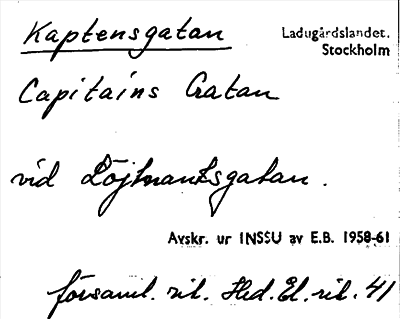 Kaptensgatan
Ladugårdslandet.
Stockholm
Capitains Gatan
vid Löjtnantsgatan.
Avskr. ur INSSU av E.B. 1958-61
församl. rit. Hed. El. rit. 41